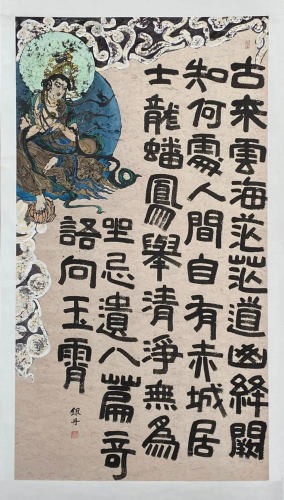 古來雲海茫茫道山絳闕
知何處人間自有赤城居
士龍蟠鳳舉清淨無為
坐忘遺八篇奇
語向玉霄